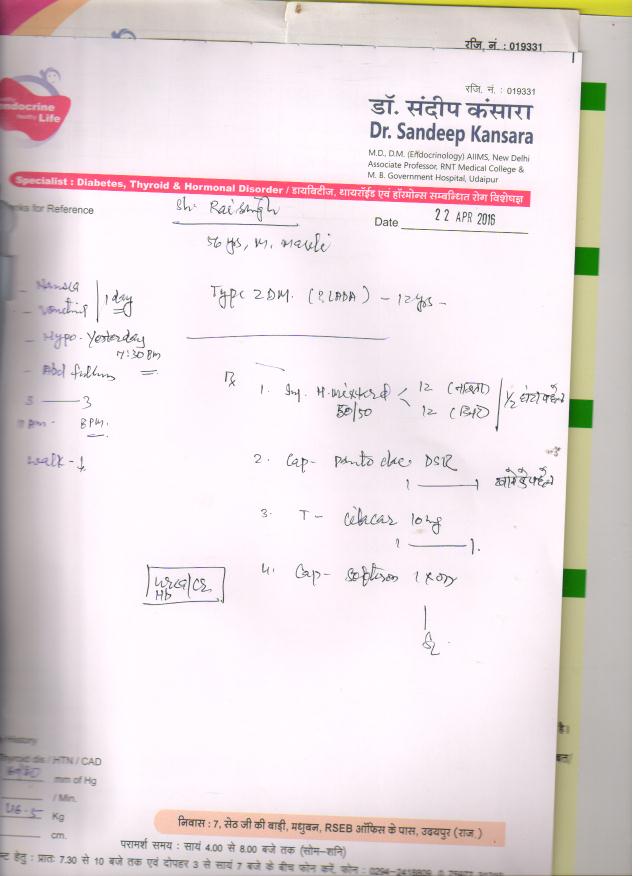 रजि. नं. : 019331
रजि. नं. : 019331
endocrine
healthy Life
डॉ. संदीप कंसारा
Dr. Sandeep Kansara
M.D., D.M. (Endocrinology) AIIMS, New Delhi
Associate Professor, RNT Medical College &
M. B. Government Hospital, Udaipur
Specialist : Diabetes, Thyroid & Hormonal Disorder / डायबिटीज, थायरॉईड एवं हॉरमोन्स सम्बन्धित रोग विशेषज्ञ
nks for Reference
Sh. Rai Singh
Date 22 APR 2016
56 yrs, M.
Type 2 DM. (? LADA) - 12 yrs -
- Nausea
- Vomiting
1 day
- Hypo. Yesterday
7:30 PM
- Abd fullness
3 — 3
8 PM.
walk - ↓
Rx
1. Inj. H. mixtard 50/50
12 (नाश्ता)
12 (डिनर)
1/2 घंटा पहले
2. Cap- Pantodac DSR
1 — 1
3. T - Cilacar 10 mg
1 — 1.
4. Cap-
1 x OD
Hb
/History
Thyroid dis / HTN / CAD
mm of Hg
/ Min.
Kg
cm.
निवास : 7, सेठ जी की बाड़ी, मधुबन, RSEB ऑफिस के पास, उदयपुर (राज.)
परामर्श समय : सायं 4.00 से 8.00 बजे तक (सोम-शनि)
स्ट हेतु : प्रातः 7.30 से 10 बजे तक एवं दोपहर 3 से सायं 7 बजे के बीच फोन करें. फोन :